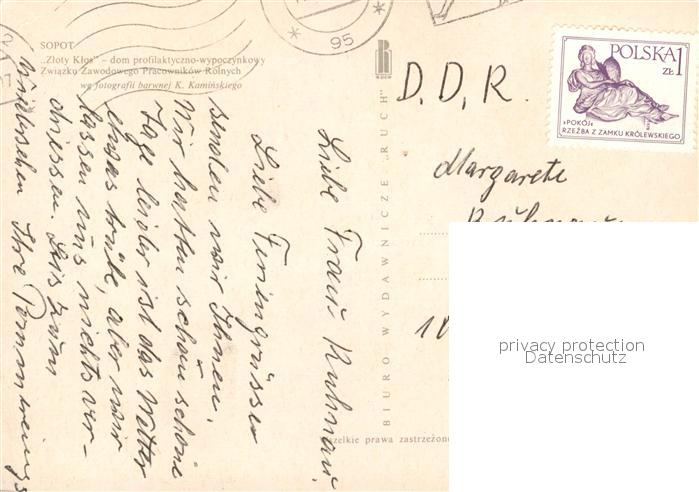 SOPOT
„Złoty Kłos" – dom profilaktyczno-wypoczynkowy
Związku Zawodowego Pracowników Rolnych
wg fotografii barwnej K. Kamińskiego
95
BIURO WYDAWNICZE „RUCH"
POLSKA 1
ZŁ
»POKÓJ«
RZEŹBA Z ZAMKU KRÓLEWSKIEGO
D.D.R.
Margarete
10
privacy protection
Datenschutz
zelkie prawa zastrzeżone
Liebe Frau Kuhnau.
Liebe Feriengrüsse
senden wir Ihnen.
Wir hatten schon schöne
Tage leider ist das Wetter
etwas trübe, aber wir
lassen uns nichts ver-
driessen. Bis zum
Wiedersehen Ihre